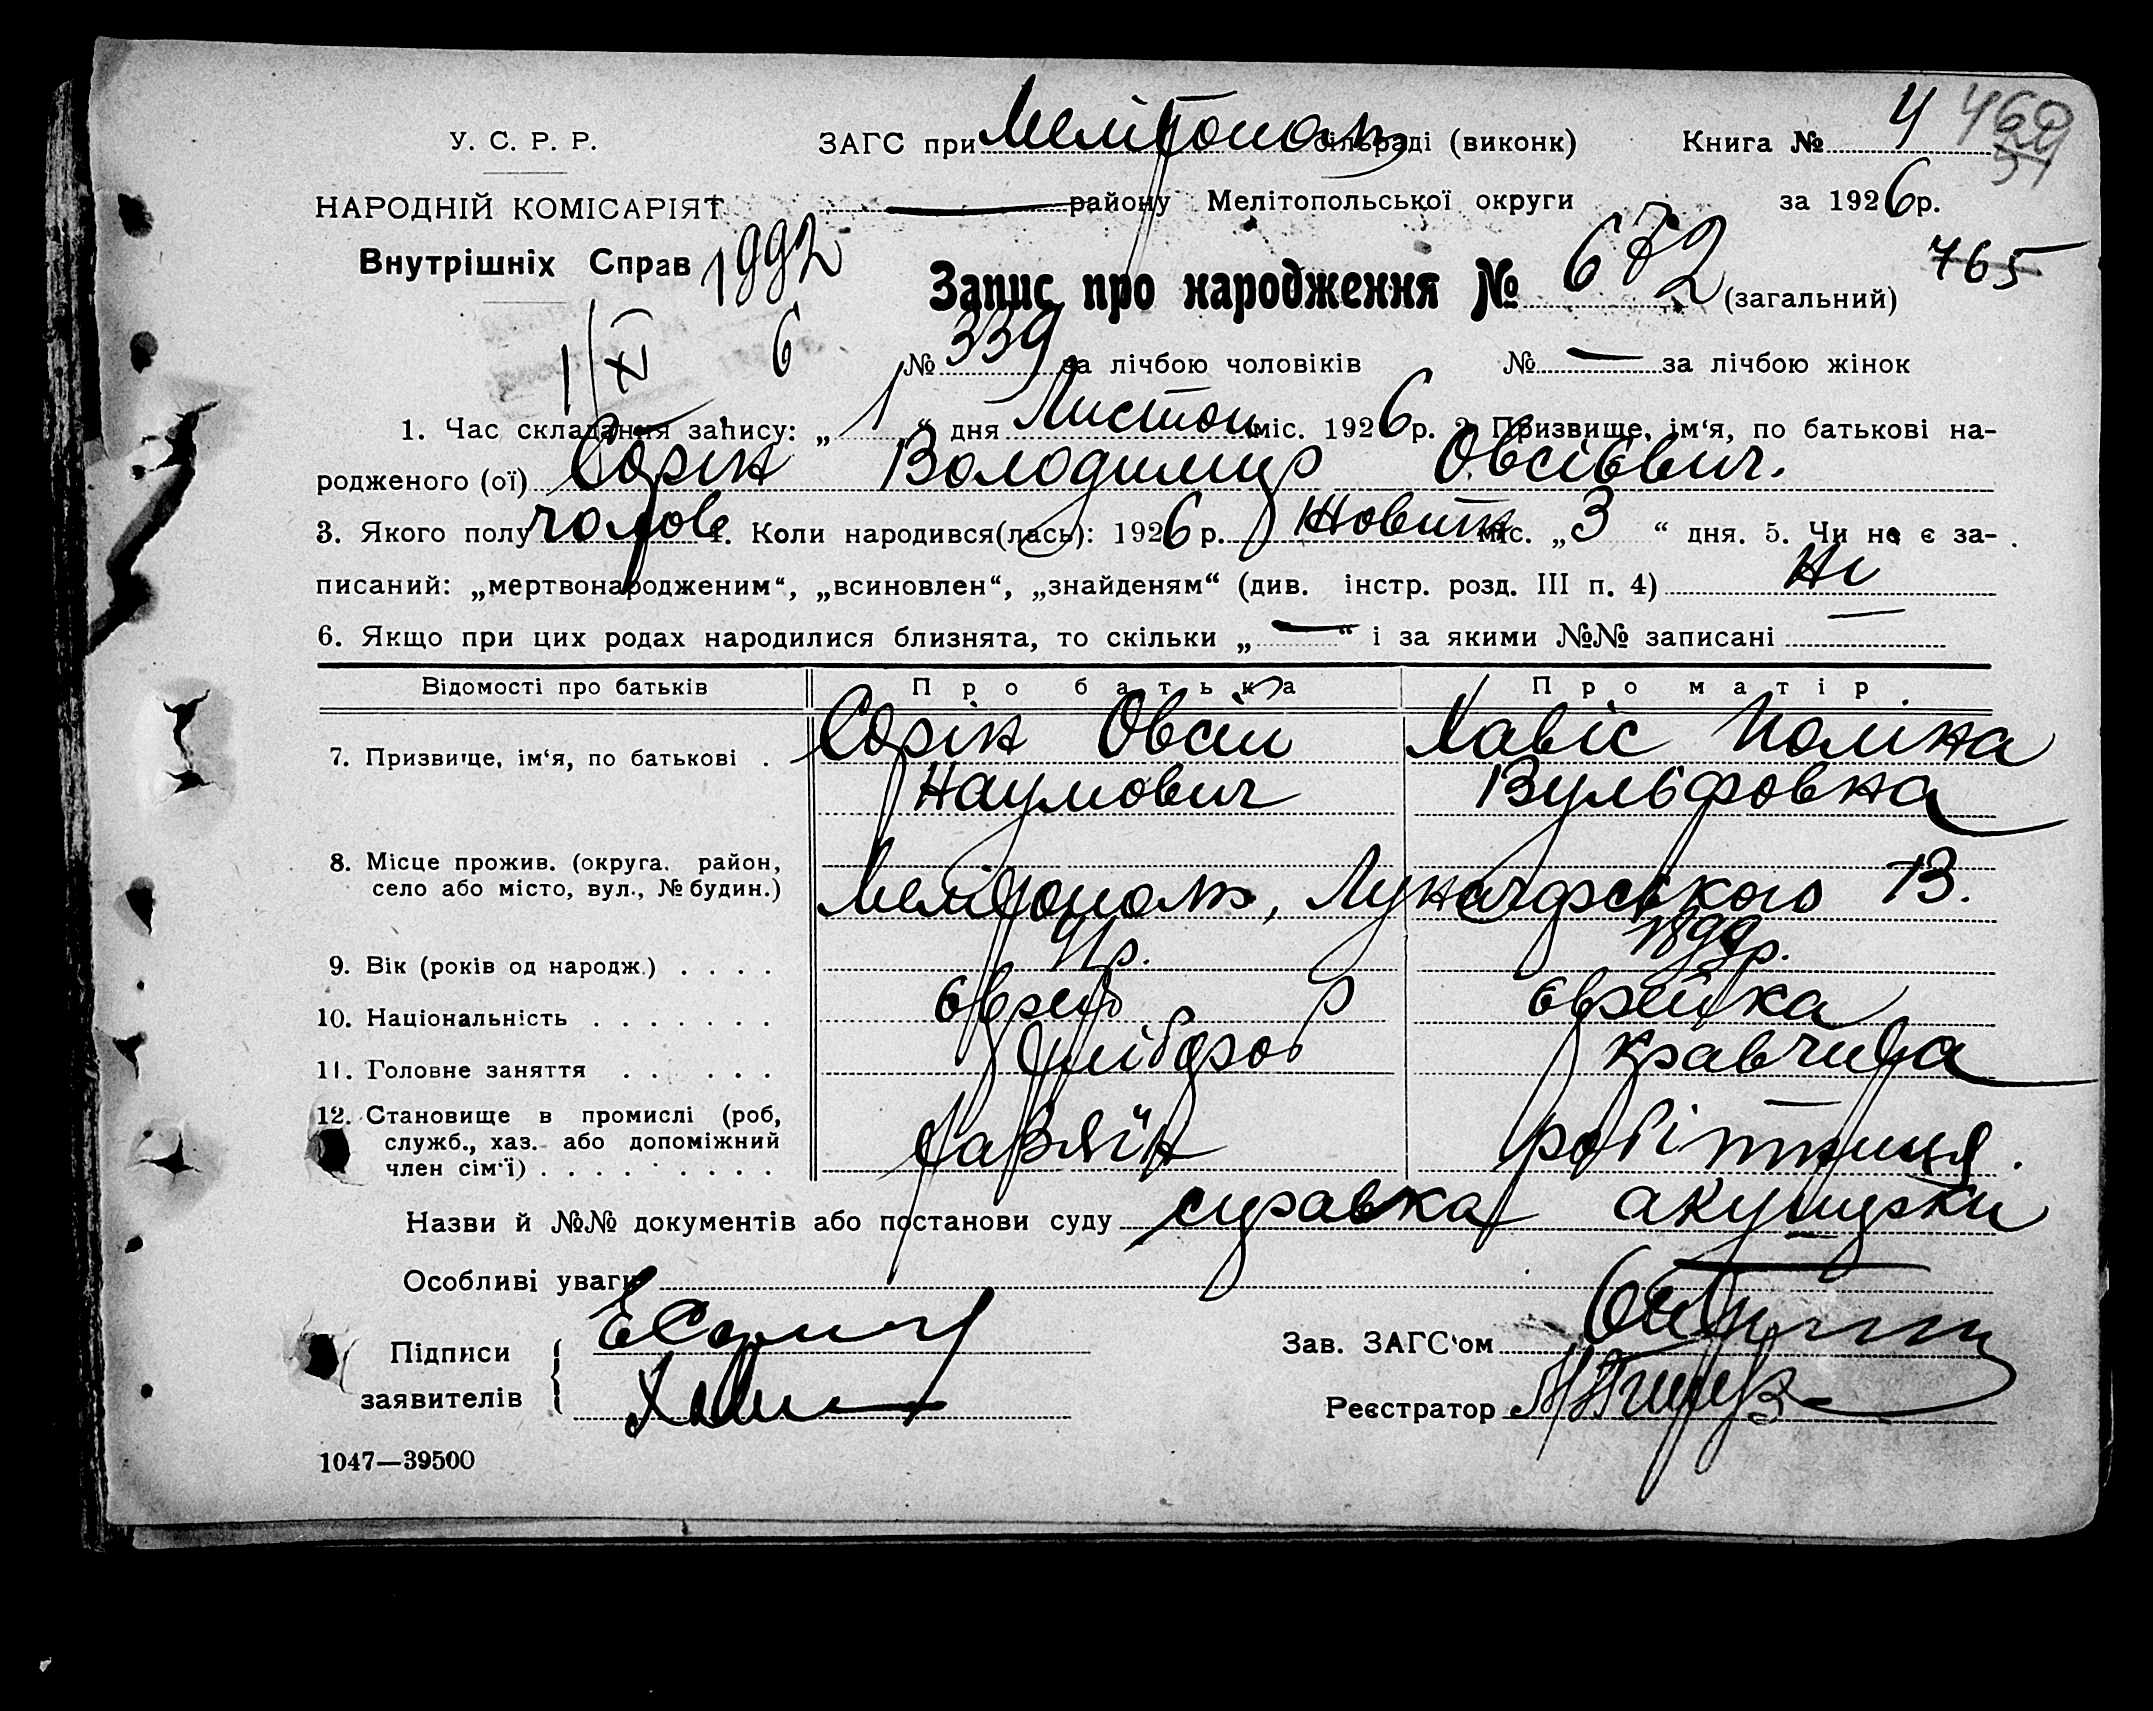 У. С. Р. Р. ЗАГС при Мелітополь сільраді (виконк) Книга № 4 460
НАРОДНІЙ КОМІСАРІЯТ — району Мелітопольської округи за 1926 р.
Внутрішніх Справ 1992 765
Запис про народження № 672 (загальний)
1/XI 6 № 339 за лічбою чоловіків № — за лічбою жінок
1. Час складання запису: „ 1 “ дня Листоп міс. 1926 р. 2. Призвище, ім‘я, по батькові на-
родженого (ої) Сорін Володимир Овсієвич.
3. Якого полу чолов 4. Коли народився(лась): 1926 р. Жовтн міс. „ 3 “ дня. 5. Чи не є за-
писаний: „мертвонародженим“, „всиновлен“, „знайденям“ (див. інстр. розд. III п. 4) Ні
6. Якщо при цих родах народилися близнята, то скільки „ — “ і за якими №№ записані —
Відомості про батьків Про батька Про матір
7. Призвище, ім‘я, по батькові . Сорін Овсій Хавіс Поліна
Наумович Вульфовна
8. Місце прожив. (округа, район,
село або місто, вул., № будин.) Мелітополь, Луначарського 13.
9. Вік (років од народж.) . . . .
10. Національність . . . . . . . єврей єврейка
11. Головне заняття . . . . . . кравчиха
12. Становище в промислі (роб,
служб., хаз. або допоміжний
член сім‘ї) . . . . . . . . . робітниця.
Назви й №№ документів або постанови суду справка акушерки
Особливі уваги
Підписи
заявителів
Зав. ЗАГС‘ом
Реєстратор
1047—39500